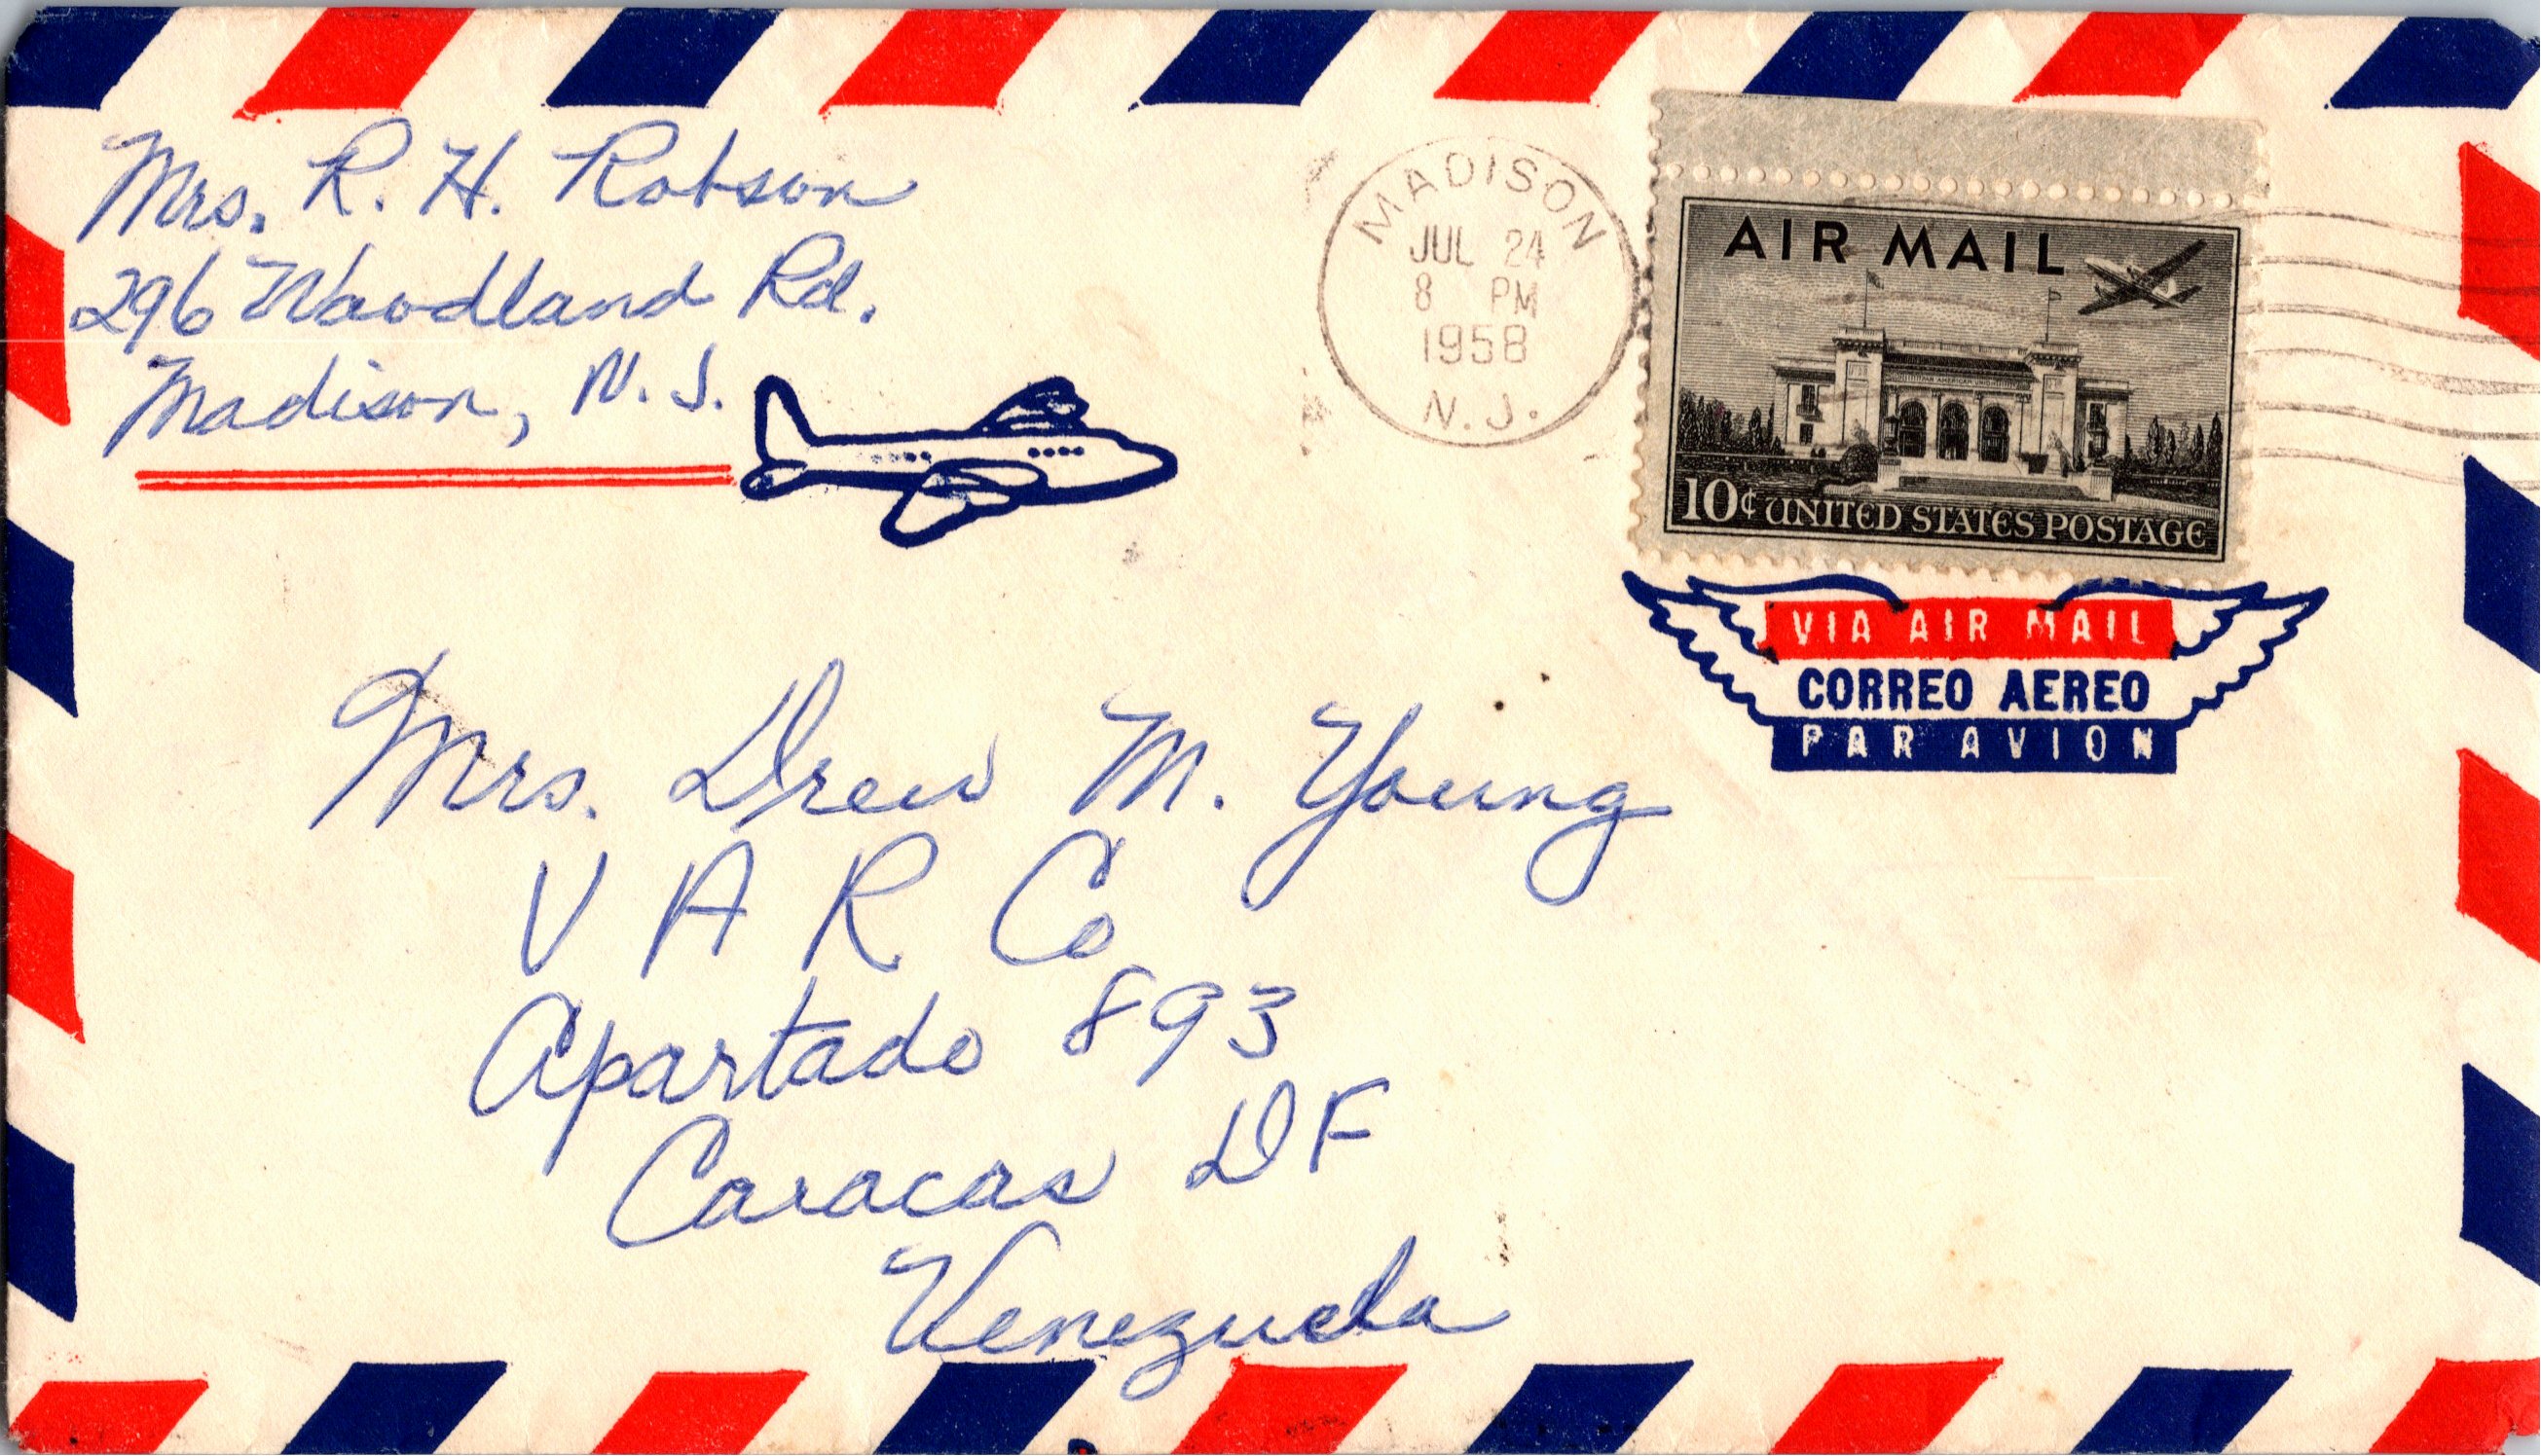 Mrs. R. H. Robson
296 Woodland Rd.
Madison, N. J.
MADISON
JUL 24
8 PM
1958
N. J.
AIR MAIL
10¢ UNITED STATES POSTAGE
VIA AIR MAIL
CORREO AEREO
PAR AVION
Mrs. Drew M. Young
V A R Co
Apartado 893
Caracas DF
Venezuela